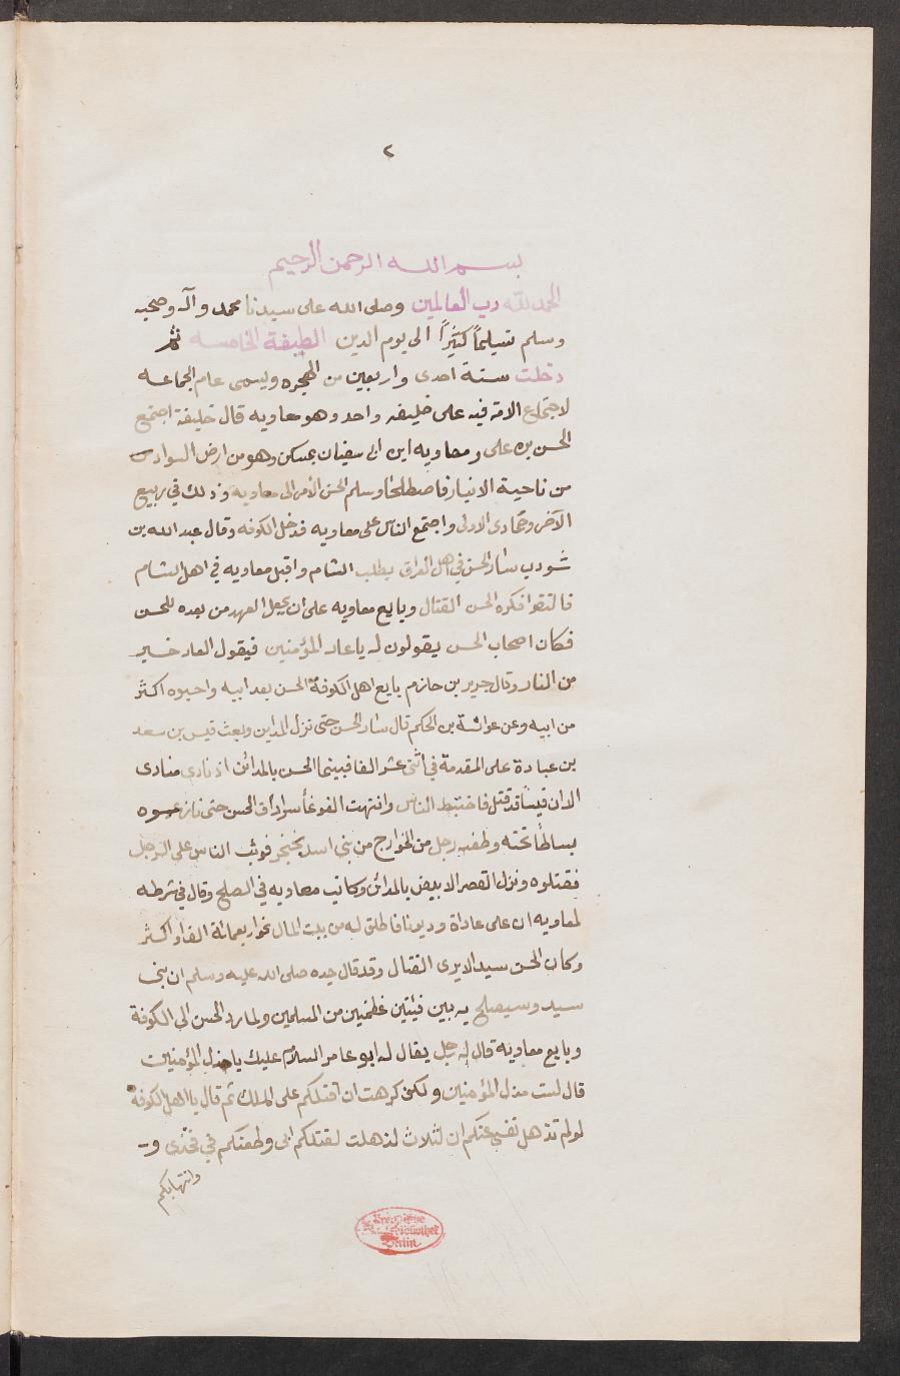 ٢
بسم الله الرحمن الرحيم
الحمد لله رب العالمين وصلى الله على سيدنا محمد وآله وصحبه
وسلم تسليماً كثيراً الى يوم الدين الطبقة الخامسه ثم
دخلت سنة احدى واربعين من الهجره ويسمى عام الجماعه
لاجتماع الامة فيه على خليفه واحد وهو معاويه قال خليفة اجتمع
الحسن بن على ومعاويه ابن ابى سفيان بمسكن وهو من ارض السواد
من ناحية الانبار فاصطلحا وسلم الحسن الأمر الى معاويه وذلك في ربيع
الآخر وجمادى الاولى واجتمع الناس على معاويه فدخل الكوفه وقال عبد الله بن
شودب سار الحسن في اهل العراق يطلب الشام واقبل معاويه في اهل الشام
فالتقوا فكره الحسن القتال وبايع معاويه على ان يجعل العهد من بعده للحسن
فكان اصحاب الحسن يقولون له يا عار المؤمنين فيقول العار خير
من النار وقال جرير بن حازم بايع اهل الكوفة الحسن بعد ابيه واحبوه اكثر
من ابيه وعن عوانة بن الحكم قال سار الحسن حتى نزل المداين وبعث قيس بن سعد
بن عبادة على المقدمة في اثنى عشر الفا فبينما الحسن بالمدائن اذ نادى منادى
الا ان قيسا قد قتل فاختبط الناس وانتهت الغوغأ سرادق الحسن حتى نازعوه
بساطا تحته وطعنه رجل من الخوارج من بنى اسد بخنجر فوثب الناس على الرجل
فقتلوه ونزل القصر الابيض بالمدائن وكاتب معاويه في الصلح وقال في شرطه
لمعاويه ان على عداة وديونا فاطلق له من بيت المال نحو اربعمائة الف او اكثر
وكان الحسن سيد الايرى القتال وقد قال جده صلى الله عليه وسلم ان بنى
سيد وسيصلح به بين فئتين عظمتين من المسلمين ولما رد الحسن الى الكوفة
وبايع معاويه قال له رجل يقال له ابو عامر السلام عليك يا مذل المؤمنين
قال لست مذل المؤمنين ولكن كرهت ان اقتلكم على الملك ثم قال يا اهل الكوفة
لو لم تذهل نفسي عنكم ان لثلاث لذهلت لقتلكم ابى وطعنكم في فخذى و
وانتهابكم